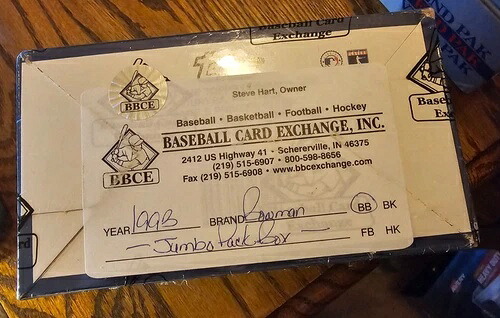 Baseball Card
Exchange
BBCE
Steve Hart, Owner
Baseball • Basketball • Football • Hockey
BASEBALL CARD EXCHANGE, INC.
2412 US Highway 41 - Schererville, IN 46375
(219) 515-6907 • 800-598-8656
Fax (219) 515-6908 • www.bbcexchange.com
BBCE
YEAR 1993 BRAND Bowman BB BK
Jumbo Pack Box FB HK
Base
Ex
PAK